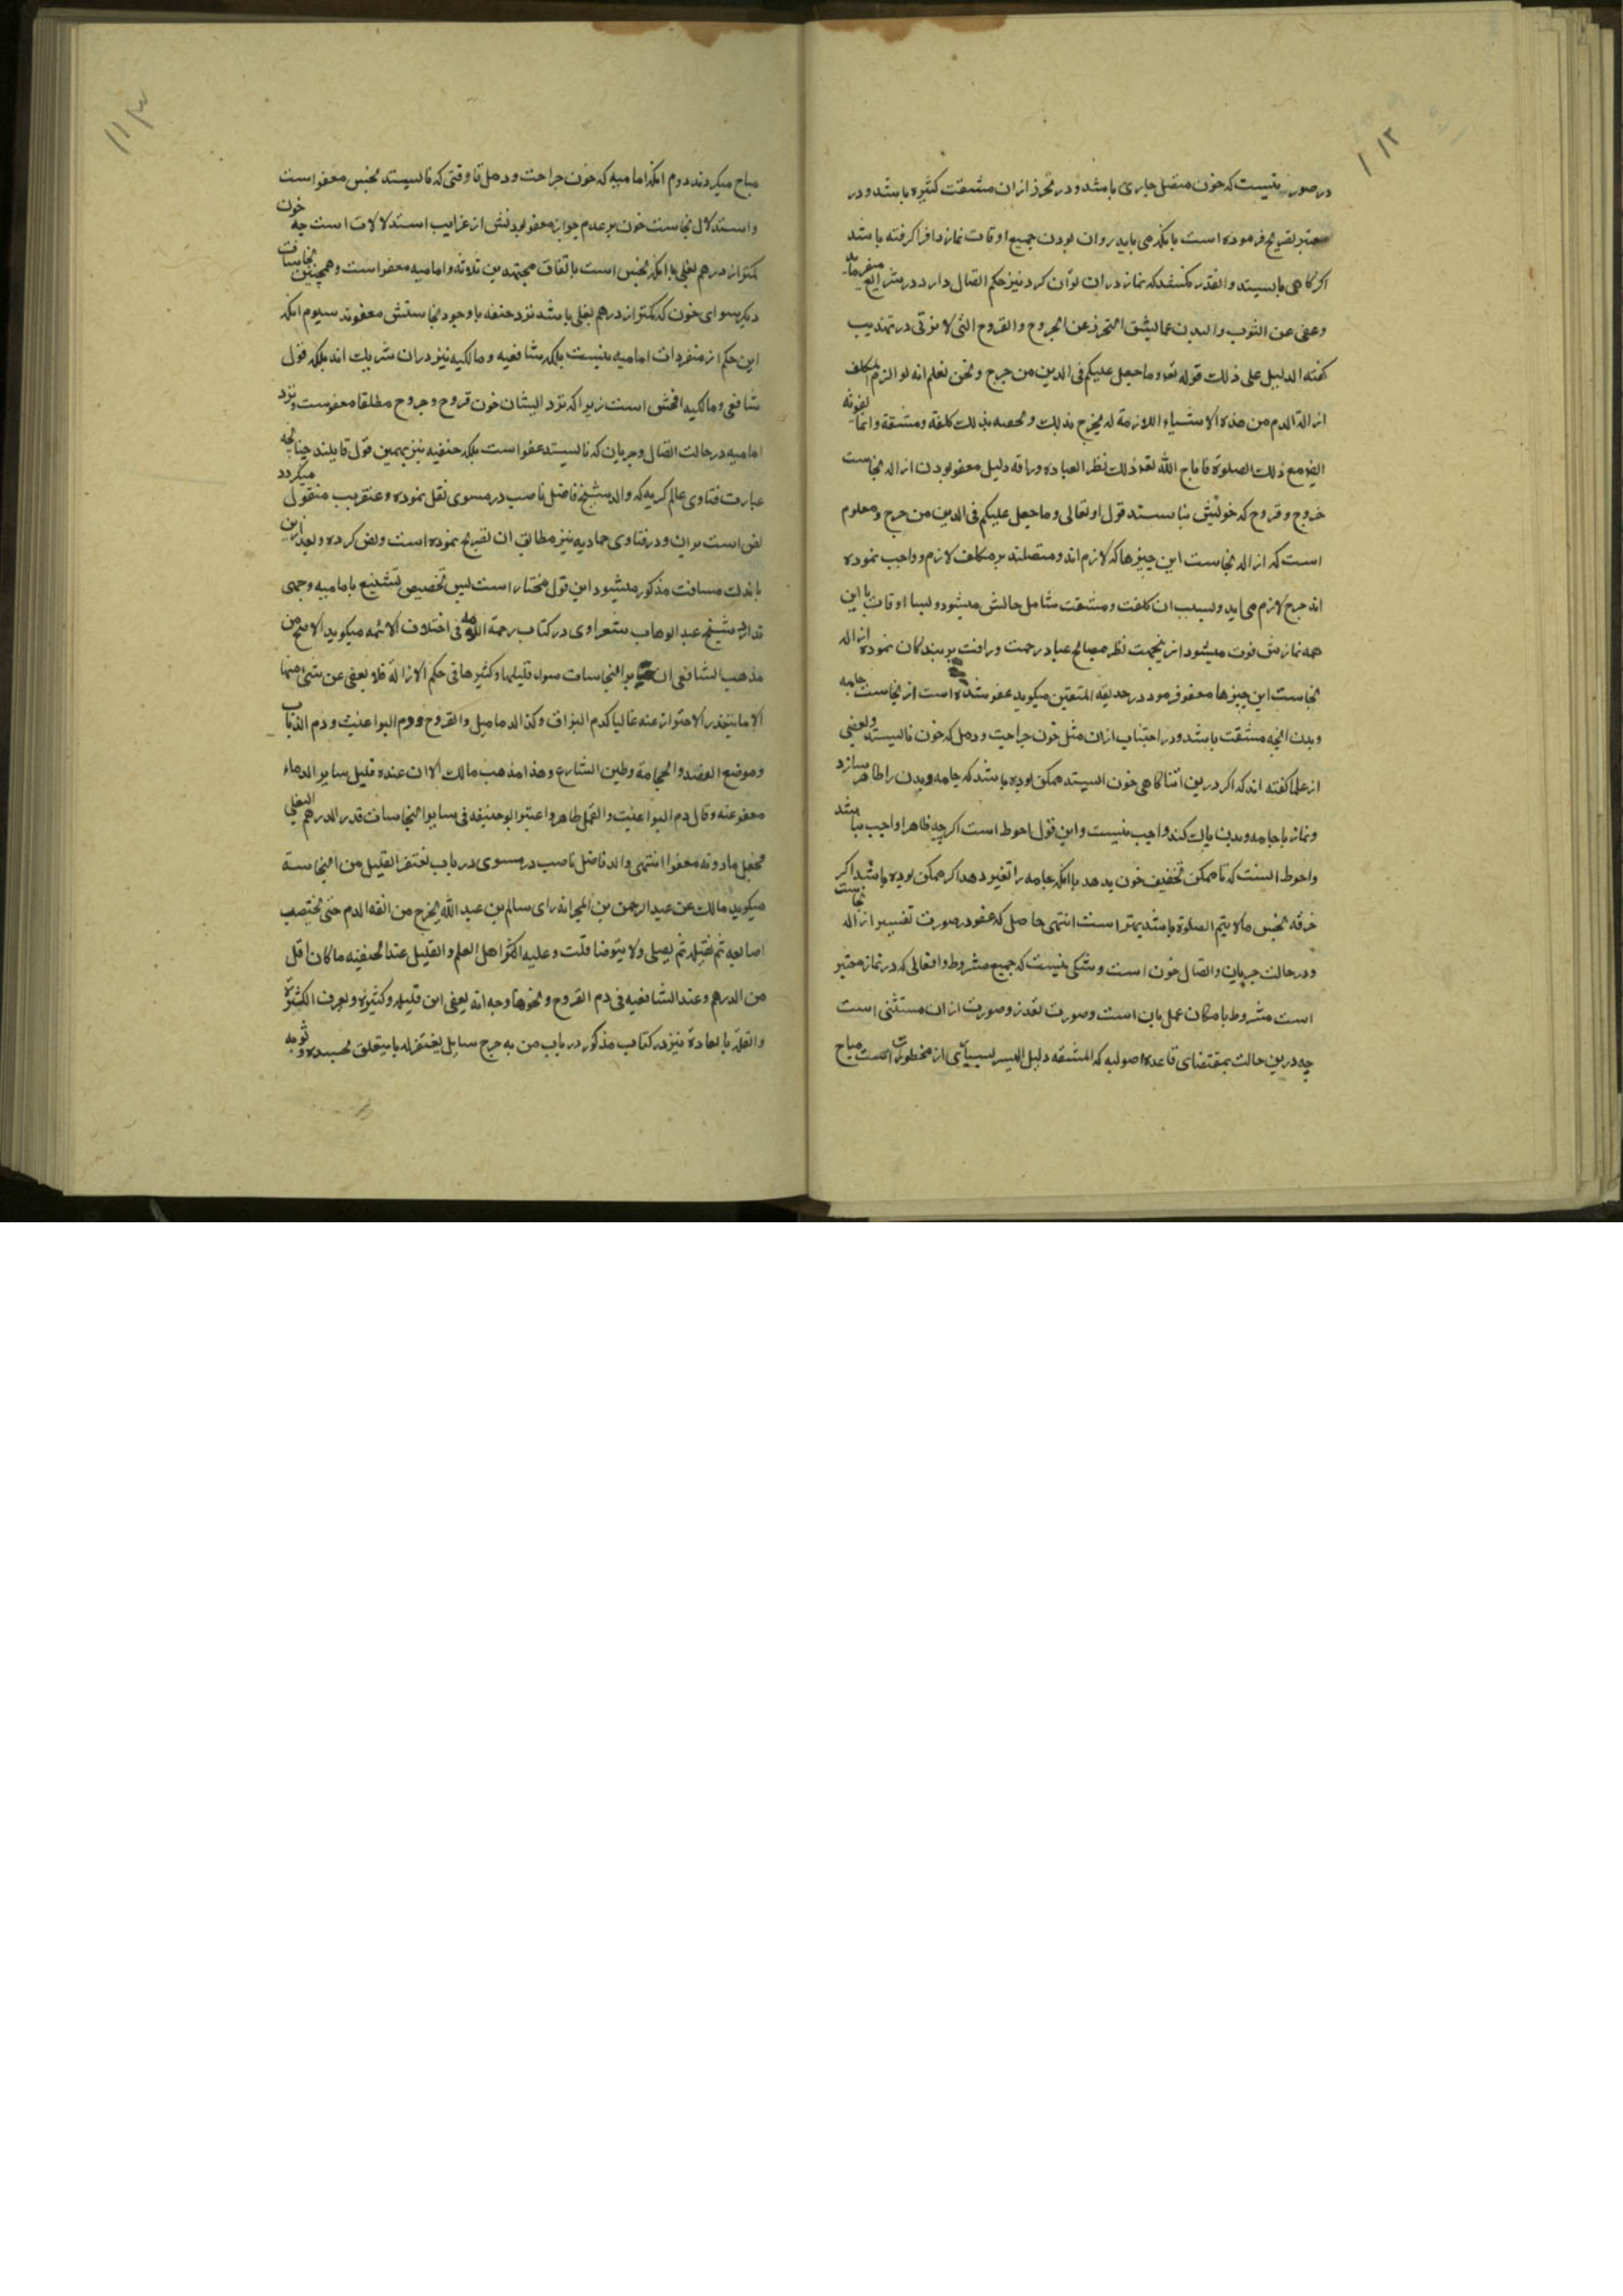 ۱۱۲
در صورتیست که خون متصل جاری باشد و در تحرز ازان مشقت کثیره باشد و در
معتبر تصریح فرموده است بانکه می باید روان بودن جمیع اوقات نماز را فرا گرفته باشد
اگر گاهی بایستد و آنقدر مکث کند که نماز دران توان کرد نیز حکم اتصال دارد در شرایع میفرماید
وعفی عن الثوب والبدن عما یشق التحرز عن الجروح والقروح التی لا ترقی در تهذیب
گفته الدلیل علی ذلک قوله تعه وما جعل علیکم فی الدین من حرج ونحن نعلم انه لو الزم المکلف
ازالة الدم من هذه الاشیاء اللازمة له یحرج بذلک ولحصه بذلک کلفة ومشقة وانما یفوته
ایضا مع ذلک الصلوة فاباح الله تعه ذلک نظرا لعباده ورافه دلیل معفو بودن ازاله نجاست
جروح و قروح که خونش نایستد قول او تعالی وما جعل علیکم فی الدین من حرج و معلوم
است که ازاله نجاست این چیزها که لازم اند و متصلند بر مکلف لازم و واجب نموده
اند حرج لازم می آید و بسبب آن کلفت و مشقت شامل حالش میشود و بسا اوقات با این
همه نمازش فوت میشود ازینجهت نظر مصالح عباد رحمت و رافت بر بندگان نموده ازاله
نجاست این چیزها معفو فرمود در حدیقه المتقین میگوید عفو شده است از نجاست جامه
و بدن آنچه مشقت باشد در اجتناب ازان مثل خون جراحت و دمل که خون نایستد و بعضی
از علما گفته اند که اگر درین اثنا گاهی خون ایستد ممکن بوده باشد که جامه و بدن را طاهر سازد
و نماز با جامه و بدن پاک کند واجب نیست و این قول احوط است اگرچه ظاهرا واجب نباشد
و احوط انست که تا ممکن تخفیف خون بدهد با انکه جامه را تغیر دهد اگر ممکن بوده باشد اگر
خرقه نجس ما لا یتم الصلوة باشد بهتر است انتهی حاصل که عفو در صورت تعسیر ازاله نجاست
و در حالت جریان و اتصال خون است و شکی نیست که جمیع مشروط و افعالی که در نماز معتبر
است مشروط بامکان عمل بان است و صورت تعذر و صورت ازان مستثنی است
چه درین حالت بمقتضای قاعده اصولیه که المشقه دلیل الیسر بسیاری از محظورات مباح
۱۱۳
مباح میگردند دوم انکه امامیه که خون جراحت و دمل تا وقتی که نایستد نجس معفو است
و استدلال نجاست خون بر عدم جواز معفو بودنش از غرایب استدلالات است چه خون
کمتر از درهم بغلی با انکه نجس است باتفاق مجتهدین ثلاثه و امامیه معفو است و همچنین نجاسات
دیگر سوای خون که کمتر از درهم بغلی باشد نزد حنفه با وجود نجاستش معفوند سیوم انکه
این حکم از منفردات امامیه نیست بلکه شافعیه و مالکیه نیز دران شریک اند بلکه قول
شافعی و مالکیه افحش است زیرا که نزد ایشان خون قروح و جروح مطلقا معفوست و نزد
امامیه در حالت اتصال و جریان که نایستد عفو است بلکه حنفیه نیز بهمین قول قایلند چنانچه
عبارت فتاوی عالمگریه که والد شیخ فاضل ناصب در مسوی نقل نموده و عنقریب منقول میگردد
نص است بران و در فتاوی حمادیه نیز مطابق آن تصریح نموده است و نص کرده و بعد ازین
باندک مسافت مذکور میشود این قول مختار است پس تخصیص تشنیع بامامیه وجهی
ندارد شیخ عبد الوهاب شعراوی در کتاب رحمة الامه فی اختلاف الائمه میگوید الاصح من
مذهب الشافعی ان سایر النجاسات سواء قلیلها و کثیرها فی حکم الازالة فلا یعفی عن شئ منها
الا ما یتعذر الاحتراز عنه غالبا کدم البراق وکذا الدمامیل والقروح ودم البراغیث ودم الذباب
وموضع الفصد والحجامة وطین الشارع وهذا مذهب مالک الا ان عنده قلیل سایر الدماء
معفو عنه وقال دم البراغیث والقمل طاهر واعتبر ابو حنیفه فی سایر النجاسات قدر الدرهم البغلی
فجعل ما دونه معفوا انتهی والد فاضل ناصب در مسوی در باب یغتفر القلیل من النجاسة
میگوید مالک عن عبد الرحمن بن المجبر انه رای سالم بن عبد الله یخرج من انفه الدم حتی تختضب
اصابعه ثم یفتله ثم یصلی ولا یتوضا قلت وعلیه اکثر اهل العلم والقلیل عند الحنفیه ما کان اقل
من الدرهم وعند الشافعیه فی دم القروح ونحوها وجه انه یعفی ان قلیله وکثیره ویعرف الکثرة
والقلة بالعادة نیز در کتاب مذکور در باب من به جرح سایل یغتفر له ما یتعلق بجسده وثوبه